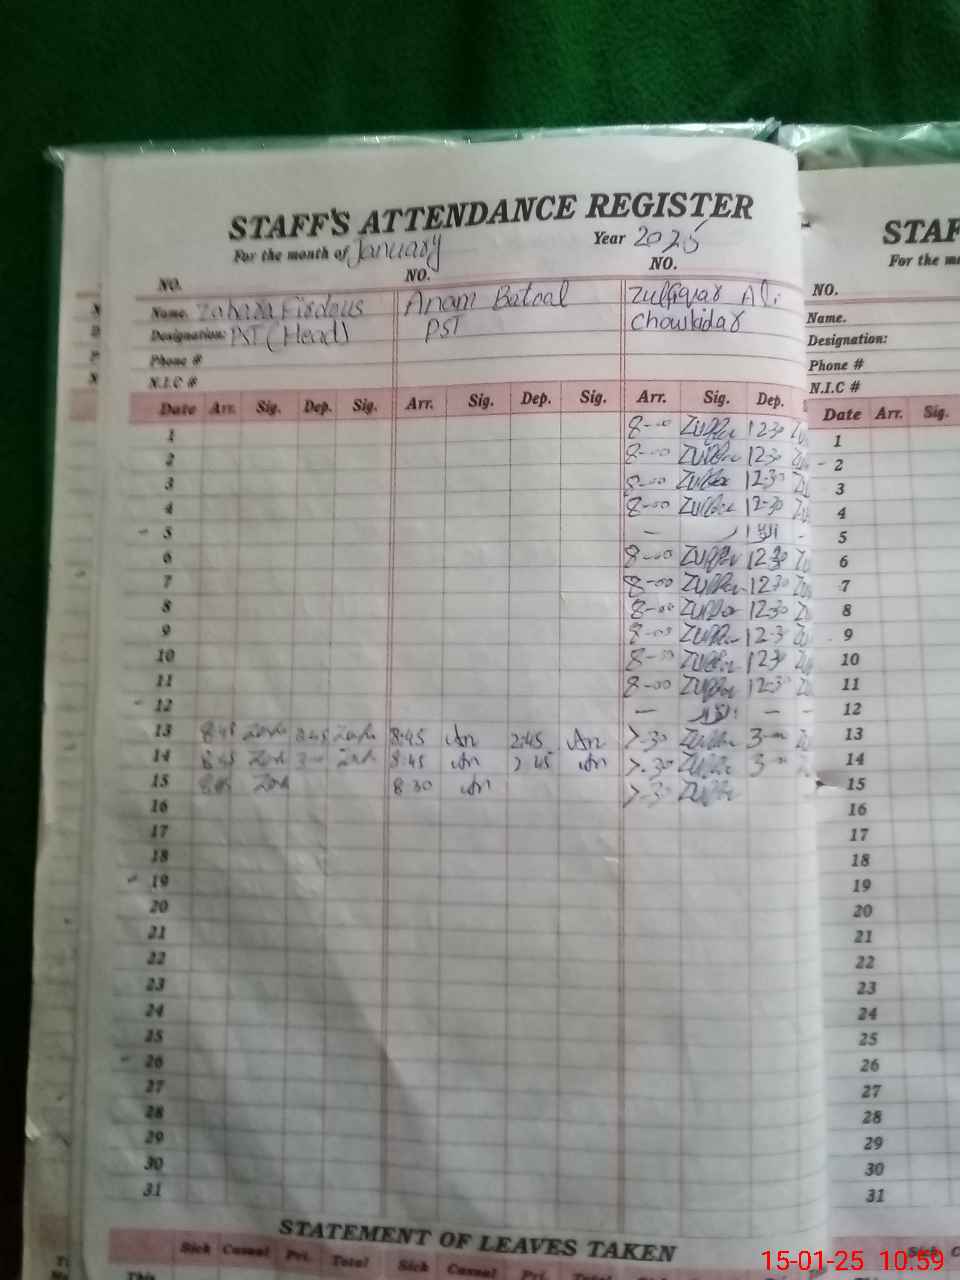 STAFF'S ATTENDANCE REGISTER
For the month of January Year 2025
NO. NO. NO.
Name. Zahara Firdous Anam Batool Zulfiqar Ali
Designation: PST (Head) PST Chowkidar
Phone #
N.I.C #
Date Arr. Sig. Dep. Sig. Arr. Sig. Dep. Sig. Arr. Sig. Dep.
1 8-00 Zulfiqar 1230
2 8-00 Zulfiqar 1230
3 8-00 Zulfiqar 12-30
4 8-00 Zulfiqar 12-30
5 — اتوار -
6 8-00 Zulfiqar 1230
7 8-00 Zulfiqar 1230
8 8-00 Zulfiqar 12-30
9 8-00 Zulfiqar 12-30
10 8-00 Zulfiqar 1230
11 8-00 Zulfiqar 12-30
12 — اتوار — -
13 8:45 Zah Zah 8:45 An 2:45 An 7-30 Zulfiqar 3-00
14 8:45 Zah 3-00 Zah 8:45 An 2:45 An 7-30 Zulfiqar 3-00
15 Zah 8 30 An 7-30 Zulfiqar
16
17
18
19
20
21
22
23
24
25
26
27
28
29
30
31
STATEMENT OF LEAVES TAKEN
Sick Casual Pri. Total Sick Casual Pri. Total Sick
This
STAF
For the mo
NO.
Name.
Designation:
Phone #
N.I.C #
Date Arr. Sig.
1
2
3
4
5
6
7
8
9
10
11
12
13
14
15
16
17
18
19
20
21
22
23
24
25
26
27
28
29
30
31
Sick C
15-01-25 10:59